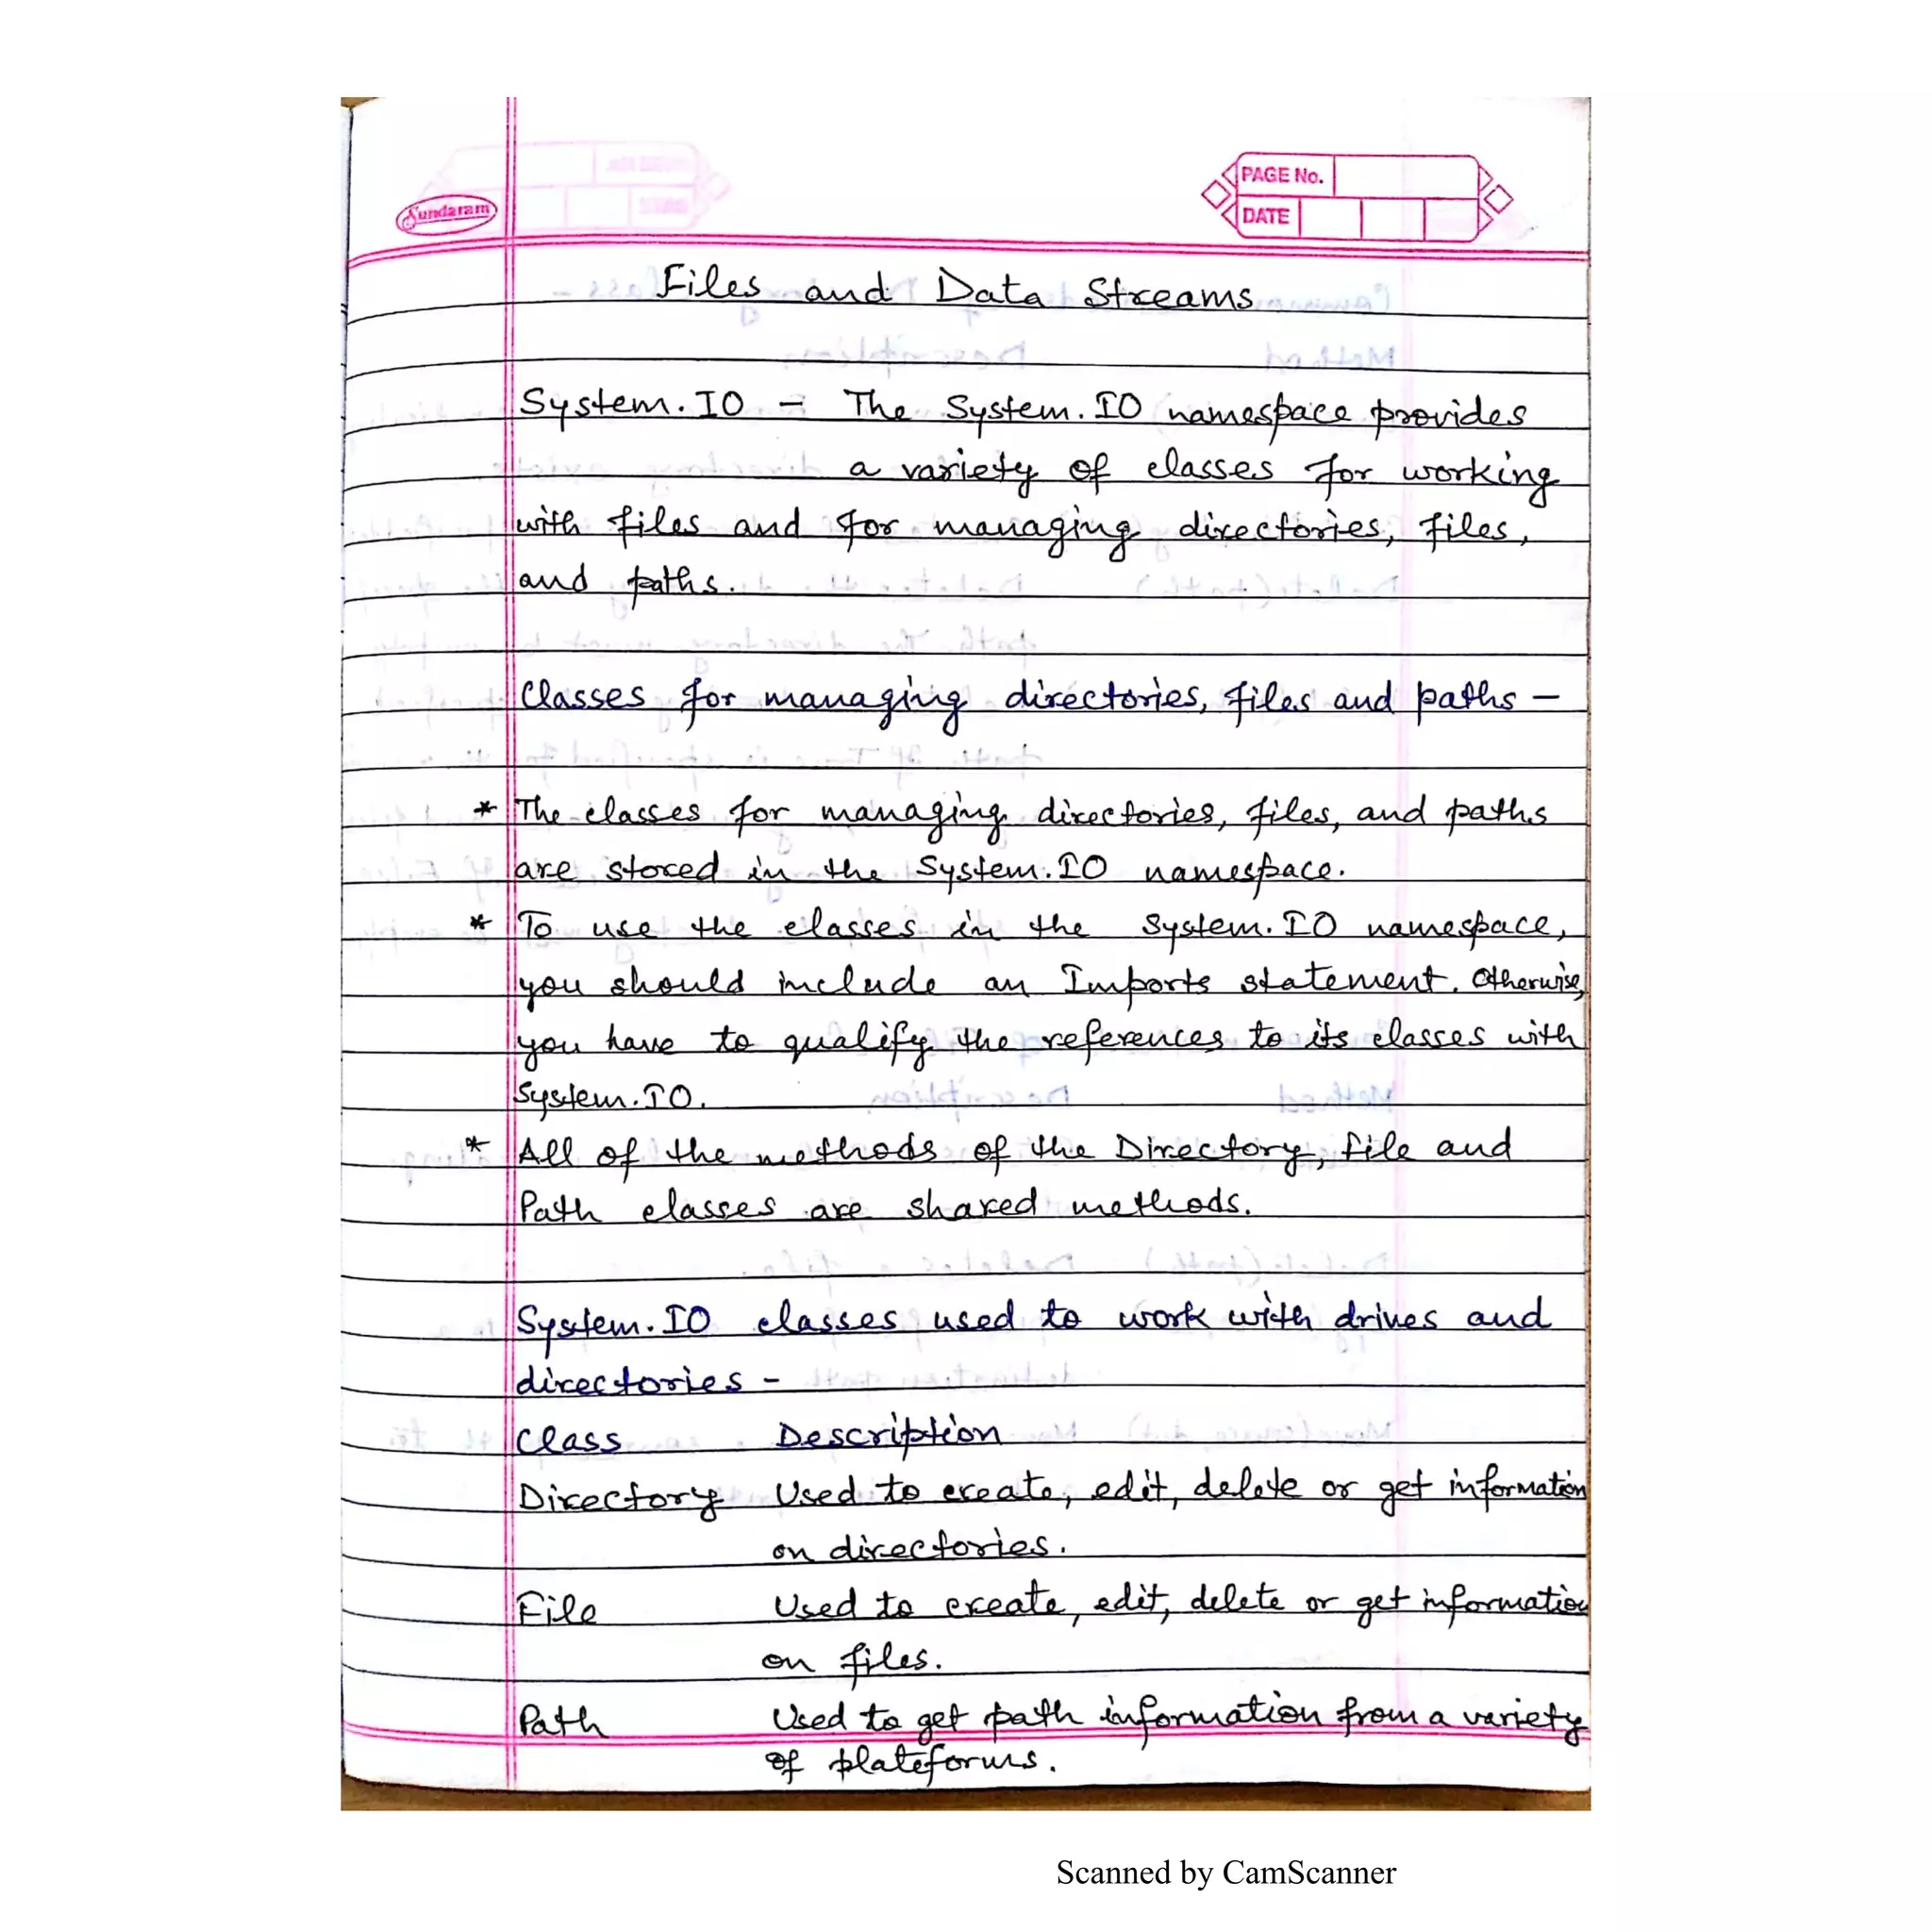 Sundaram
PAGE No.
DATE
Files and Data Streams
System.IO – The System.IO namespace provides
a variety of classes for working
with files and for managing directories, files,
and paths.
Classes for managing directories, files and paths –
* The classes for managing directories, files, and paths
are stored in the System.IO namespace.
* To use the classes in the System.IO namespace,
you should include an Imports statement. Otherwise,
you have to qualify the references to its classes with
System.IO.
* All of the methods of the Directory, file and
Path classes are shared methods.
System.IO classes used to work with drives and
directories –
Class Description
Directory Used to create, edit, delete or get information
on directories.
File Used to create, edit, delete or get information
on files.
Path Used to get path information from a variety
of plateforms.
Scanned by CamScanner